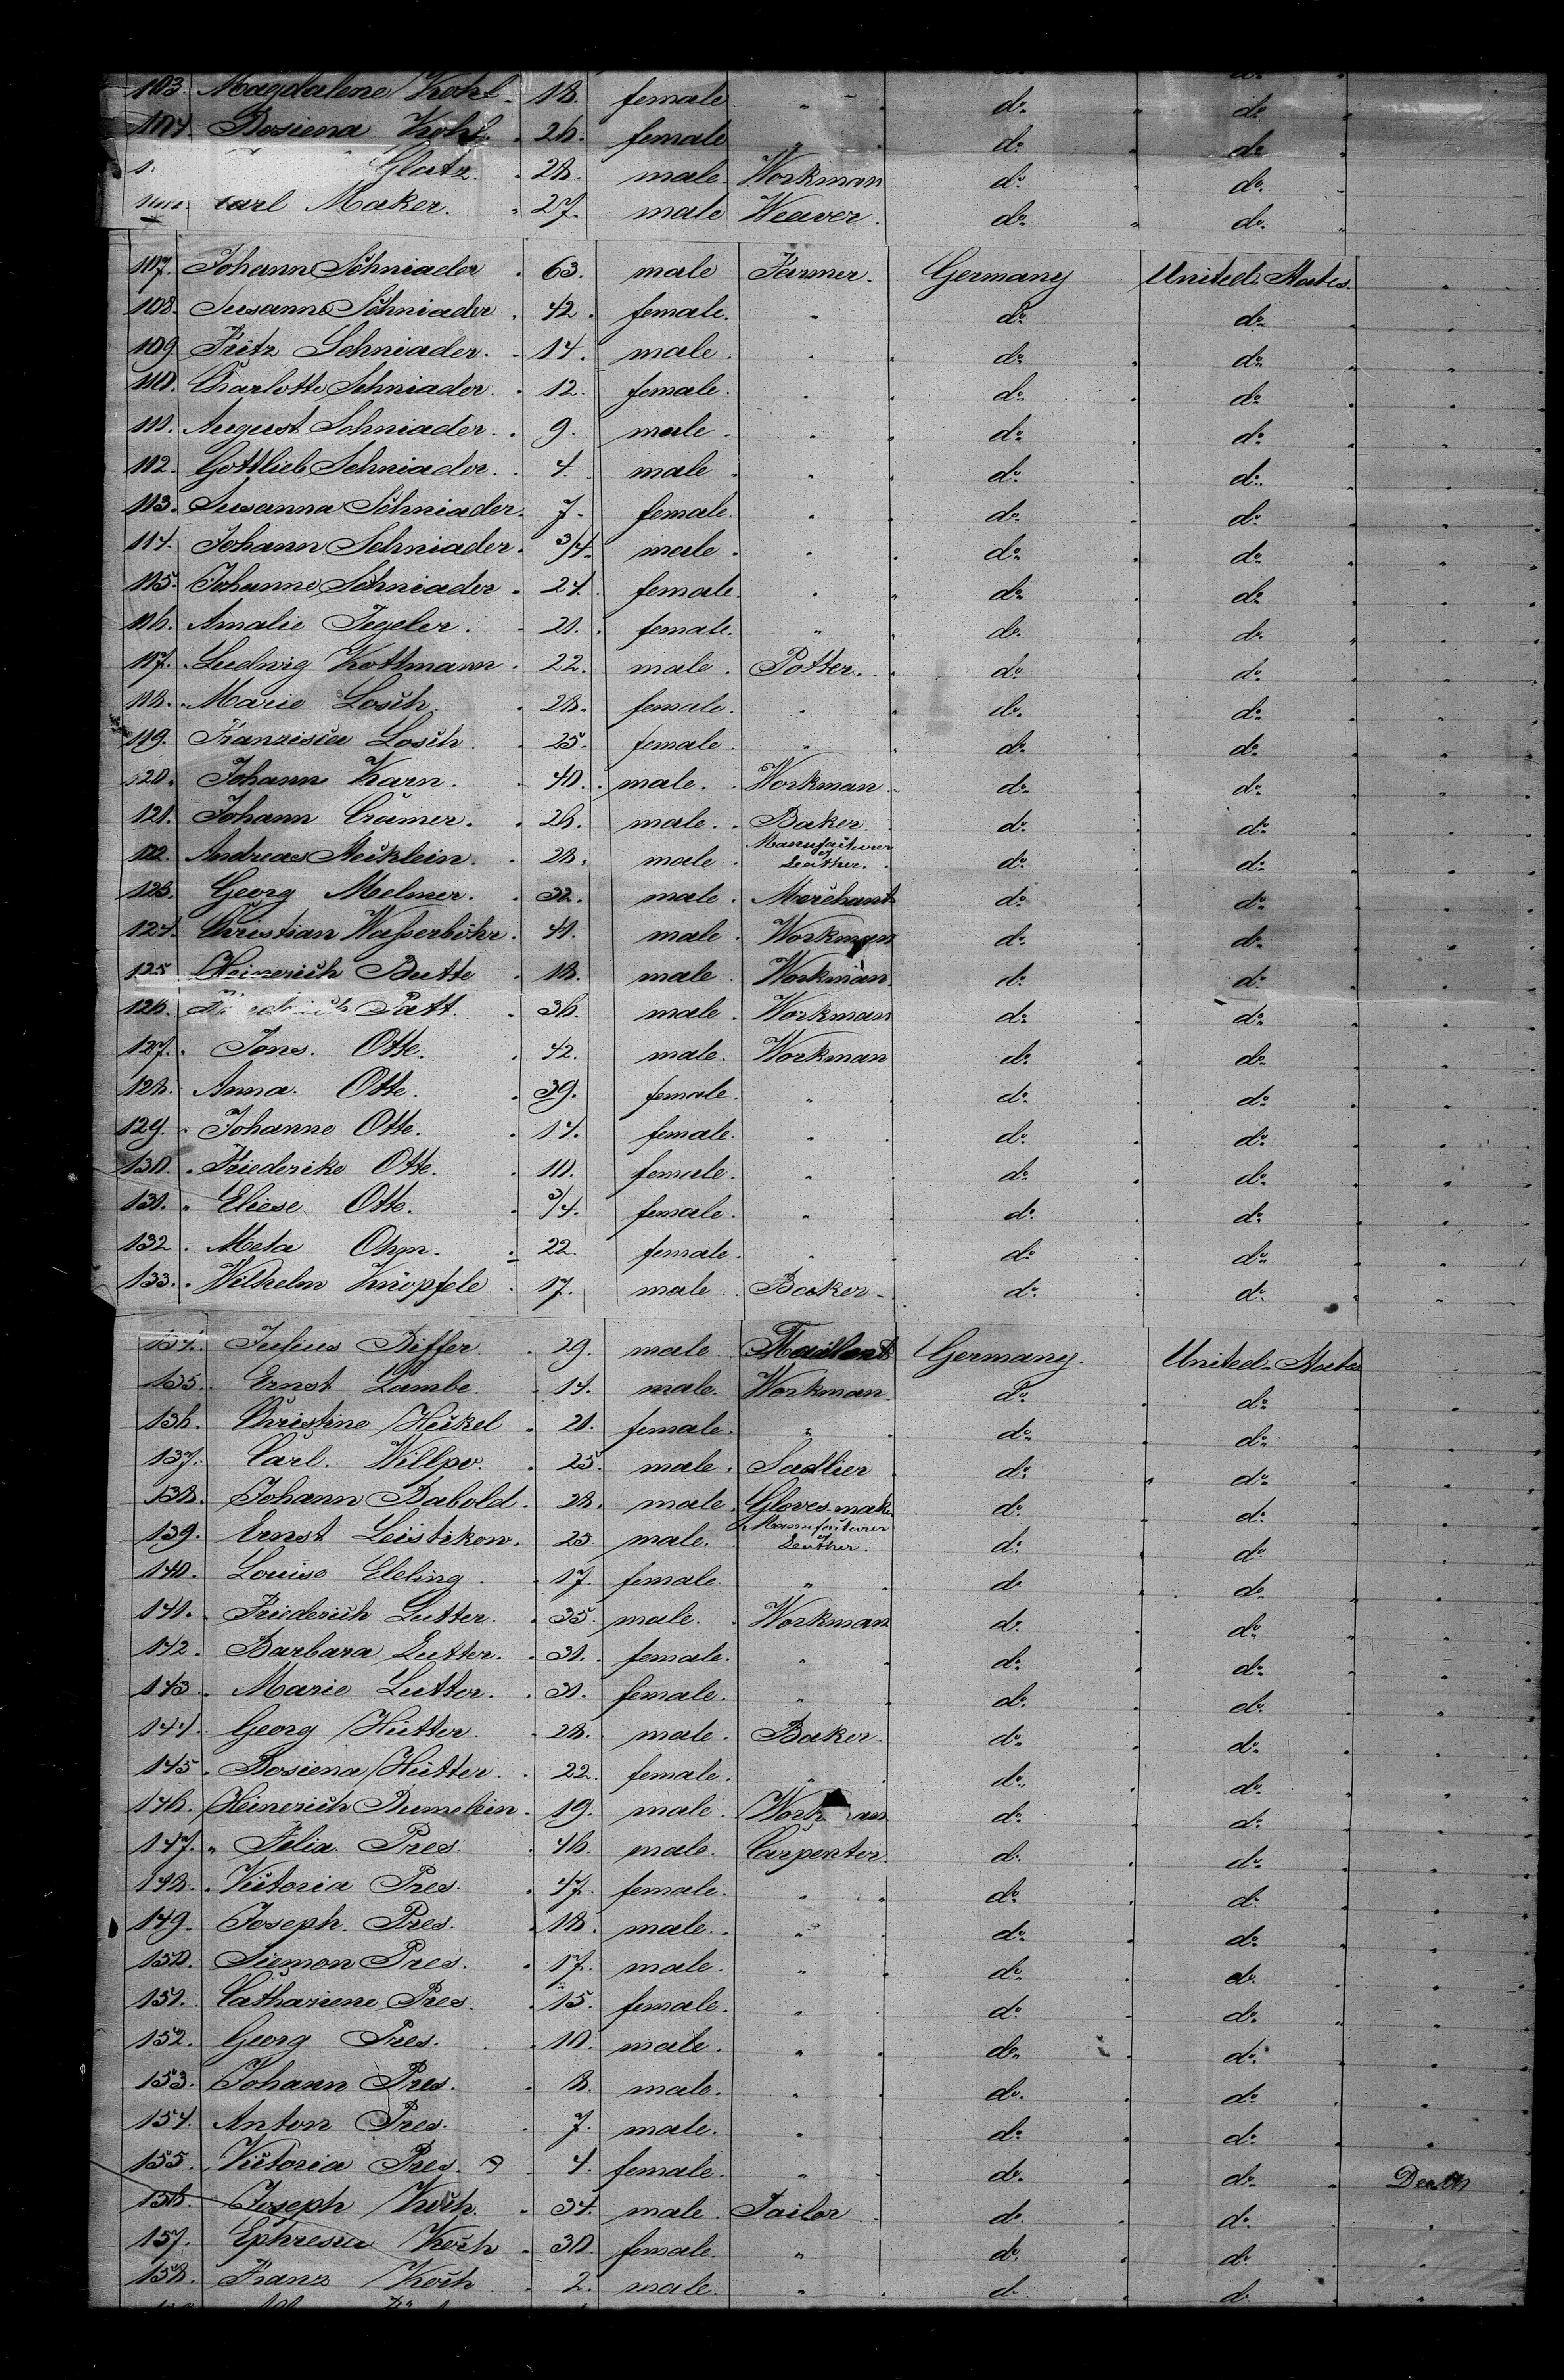 103. Magdalene Kohl. 18. female " do. do.
104. Rosiena Kohl. 26. female " do. do.
Glatz. 28. male. Workman do. do.
Carl Maker. 27. male Weaver. do. do.
107. Johann Schniader. 63. male Farmer. Germany United States. "
108. Susanne Schniader. 42. female. " do. do. "
109 Fritz Schniader. 14. male. " do. do. "
110. Charlotte Schniader. 12. female. " do. do. "
111. August Schniader. 9. male. " do. do. "
112. Gottlieb Schniader. 4. male " do. do. "
113. Susanna Schniader. 7. female. " do. do. "
114. Johann Schniader. 3/4. male. " do. do. "
115. Johanne Schniader. 24. female. " do. do. "
116. Amalie Tegeler. 21. female. " do. do. "
117. Ludwig Kottmann. 22. male. Potter. do. do. "
118. Marie Losch. 28. female. " do. do. "
119. Franzisca Losch. 25. female. " do. do. "
120. Johann Karn. 40. male. Workman do. do. "
121. Johann Cramer. 26. male. Baker. do. do. "
122. Andreas Stecklein. 28. male. Manufacturer of Leather. do. do. "
123. Georg Melmer. 32. male. Merchant do. do. "
124. Christian Waßerböhr. 41. male. Workman do. do. "
125 Heinerich Butte 18. male Workman do. do. "
126. Patt. 36. male. Workman do. do. "
127. Jons. Otte. 42. male. Workman do. do. "
128. Anna. Otte. 39. female. " do. do. "
129. Johanne Otte. 14. female. " do. do. "
130. Friederike Otte. 10. female. " do. do. "
131. Eliese Otte. 3/4. female. " do. do. "
132. Meta Ohm. 22. female. " do. do. "
133. Wilhelm Knöpfele. 17. male. Baker. do. do. "
134. Julius Biffer. 29. male. Germany. United States "
135. Ernst Lambe. 14. male. Workman do. do. "
136. Christine Heckel. 21. female. " do. do. "
137. Carl. Willpo. 25. male. Sadlier do. do. "
138. Johann Babold. 28. male. Gloves-make do. do. "
139. Ernst Leistikow. 25. male. Manufacturer of Leather. do. do. "
140. Louise Ebeling. 17. female. " do. do. "
141. Friederich Lutter. 35. male. Workman do. do. "
142. Barbara Lutter. 31. female. " do. do. "
143. Marie Lutter. 31. female. " do. do. "
144. Georg Hutter. 28. male. Baker. do. do. "
145. Rosiena Hutter. 22. female. " do. do. "
146. Heinerich Bumelein. 19. male. Workman do. do. "
147. Felix Pres. 46. male. Carpenter. do. do. "
148. Victoria Pres. 47. female. " do. do. "
149. Joseph. Pres. 18. male. " do. do. "
150. Siemon Pres. 17. male. " do. do. "
151. Cathariene Pres. 15. female. " do. do. "
152. Georg Pres. 10. male. " do. do. "
153. Johann Pres. 8. male. " do. do. "
154. Anton Pres. 7. male. " do. do. "
155. Victoria Pres. 4. female. " do. do. Death
156. Joseph Koch. 34. male. Tailor do. do. "
157. Ephresia Koch. 30. female. " do. do. "
158. Franz Koch. 2. male. " do. do. "